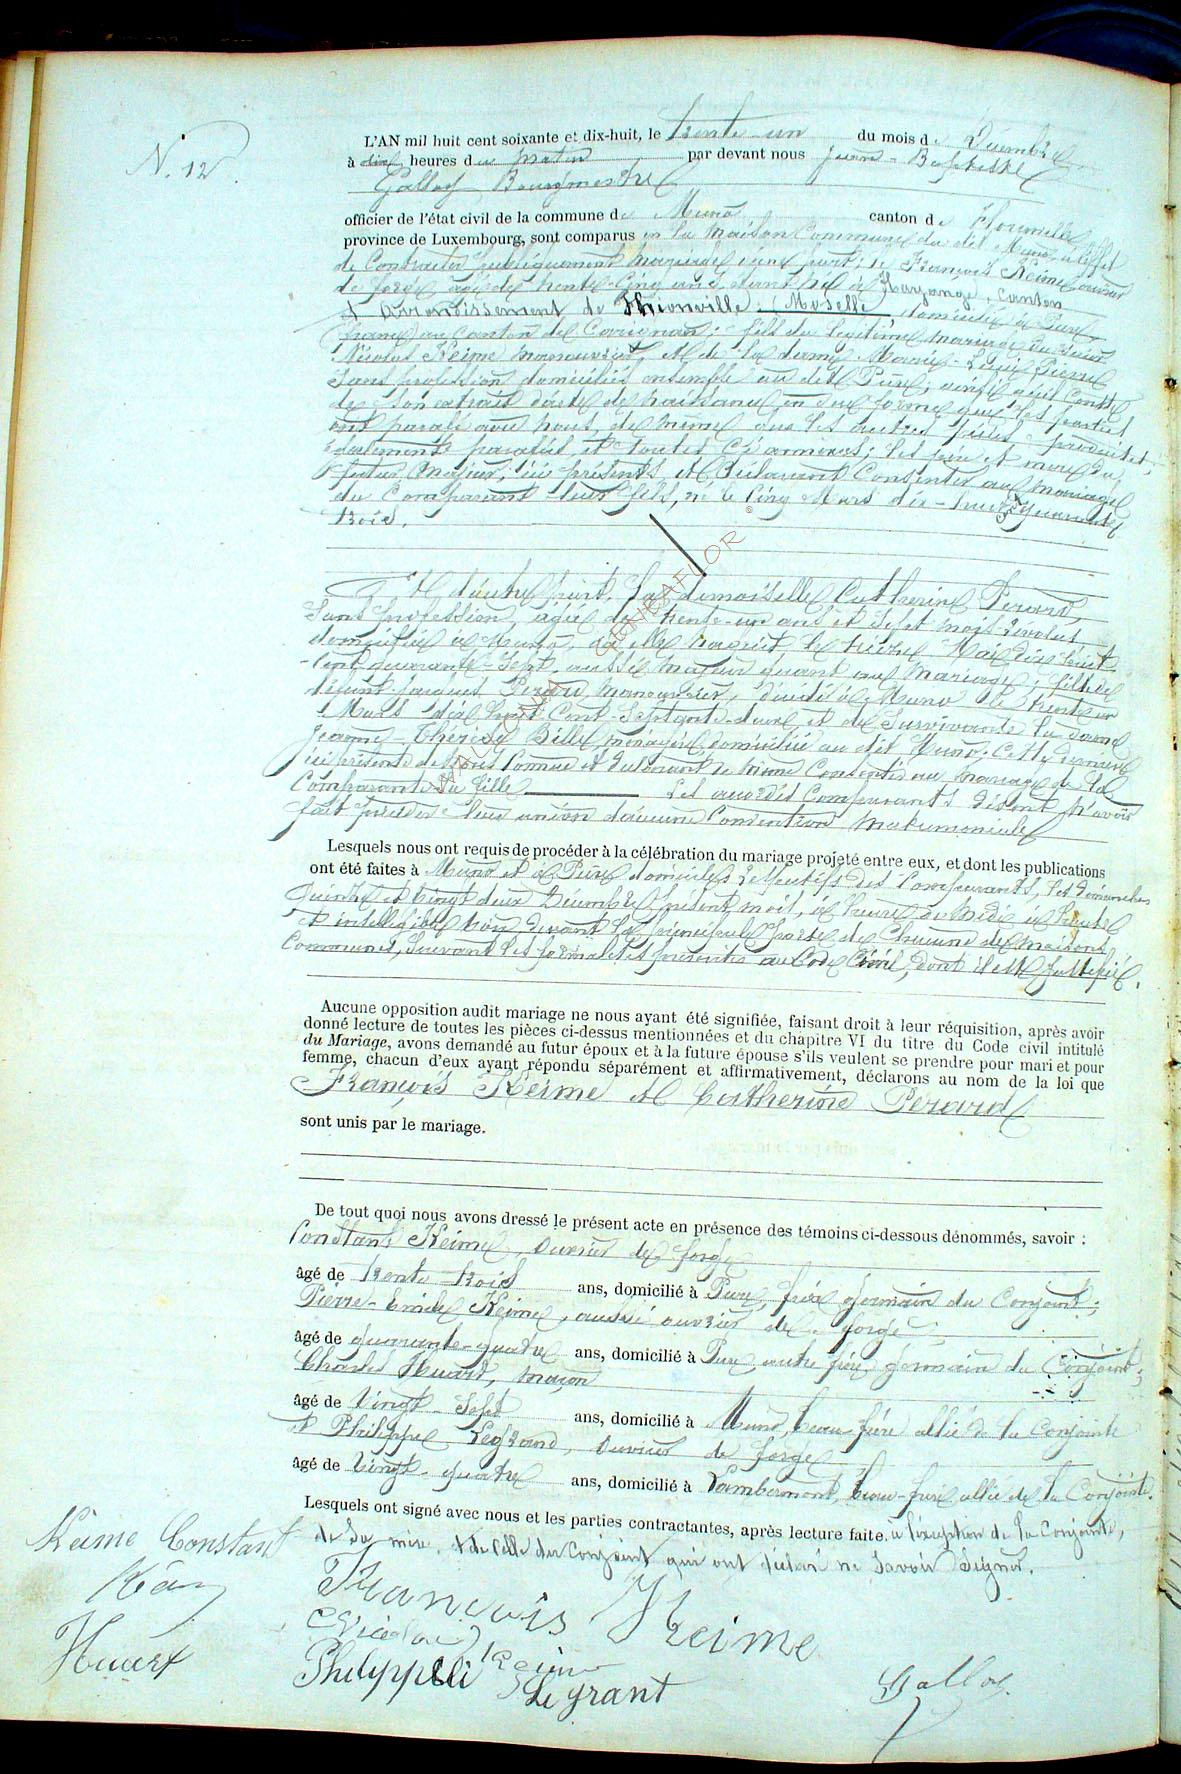 N. 12
L'AN mil huit cent soixante et dix-huit, le trente-un du mois de Décembre
à dix heures du matin par devant nous Jean-Baptiste
Galloy Bourgmestre
officier de l'état civil de la commune de Muno canton de Florenville
province de Luxembourg, sont comparus en la maison Commune du dit Muno, à l'effet
de Contracter publiquement mariage d'une part; le François Keime, ouvrier
de forge, âgé de trente-cinq ans, étant né à Hayange, canton
et Arrondissement de Thionville (Moselle), domicilié à Pure,
france au canton de Carignan; fils du légitime mariage du sieur
Nicolas Keime manouvrier, et de la dame Marie-Louise Pierre
Sans profession domiciliés ensemble au dit Pure; ainsi qu'il Conste
de son extrait d'acte de naissance en due forme que les parties
ont paraphé avec nous, de même que les autres pièces produites,
également paraphées et toutes Ci-annexées; les père et mère du
futur, Majeur, ici présents et déclarant Consentir au mariage
du Comparant leur fils, né le Cinq Mars dix-huit-Cent-quarante
trois.
Et d'autre part, la demoiselle Catherine Perard
Sans profession, âgée de trente-un ans et Sept mois révolus
domiciliée à Muno, où elle naquit le treize Mai dix-huit
-Cent quarante-Sept, aussi majeure quant au Mariage; fille de
défunt Jacques Perard manouvrier, décédé à Muno le trente un
Mars dix huit Cent-Septante-deux et de Survivante la dame
Jeanne-Thérèse Bille, ménagère domiciliée au dit Muno; Cette dernière
ici présente de nous Connue et déclarant de même Consentir au mariage de la
Comparante sa fille Les accordés Comparants disent n'avoir
fait précéder leur union d'aucune Convention matrimoniale
GENEAFLOR
Lesquels nous ont requis de procéder à la célébration du mariage projeté entre eux, et dont les publications
ont été faites à Muno et à Pure domiciles respectifs des Comparants, les Dimanches
quinze et vingt deux Décembre présent mois, à l'heure de Midi à haute
et intelligible voix devant la principale porte de Chacune des maisons
Communes, Suivant les formalités prescrites au Code Civil, dont il est justifié.
Aucune opposition audit mariage ne nous ayant été signifiée, faisant droit à leur réquisition, après avoir
donné lecture de toutes les pièces ci-dessus mentionnées et du chapitre VI du titre du Code civil intitulé
du Mariage, avons demandé au futur époux et à la future épouse s'ils veulent se prendre pour mari et pour
femme, chacun d'eux ayant répondu séparément et affirmativement, déclarons au nom de la loi que
François Keime et Catherine Perard
sont unis par le mariage.
De tout quoi nous avons dressé le présent acte en présence des témoins ci-dessous dénommés, savoir :
Constant Keime, Ouvrier de forge
âgé de trente-trois ans, domicilié à Pure, frère germain du Conjoint;
Pierre-Emile Keime, aussi ouvrier de forge
âgé de quarante-quatre ans, domicilié à Pure, autre frère germain du Conjoint;
Charles Huart, maçon
âgé de vingt-Sept ans, domicilié à Muno, beau-frère allié de la Conjointe
et Philippe Legrand, Ouvrier de forge
âgé de vingt-quatre ans, domicilié à Lambermont, beau-frère allié de la Conjointe.
Lesquels ont signé avec nous et les parties contractantes, après lecture faite, à l'exception de la Conjointe,
de Sa mère, et de Celle du Conjoint qui ont déclaré ne Savoir Signer.
Keime Constant
François Keime
Nicolas Keime
Huart
Philippe Legrant
Galloy